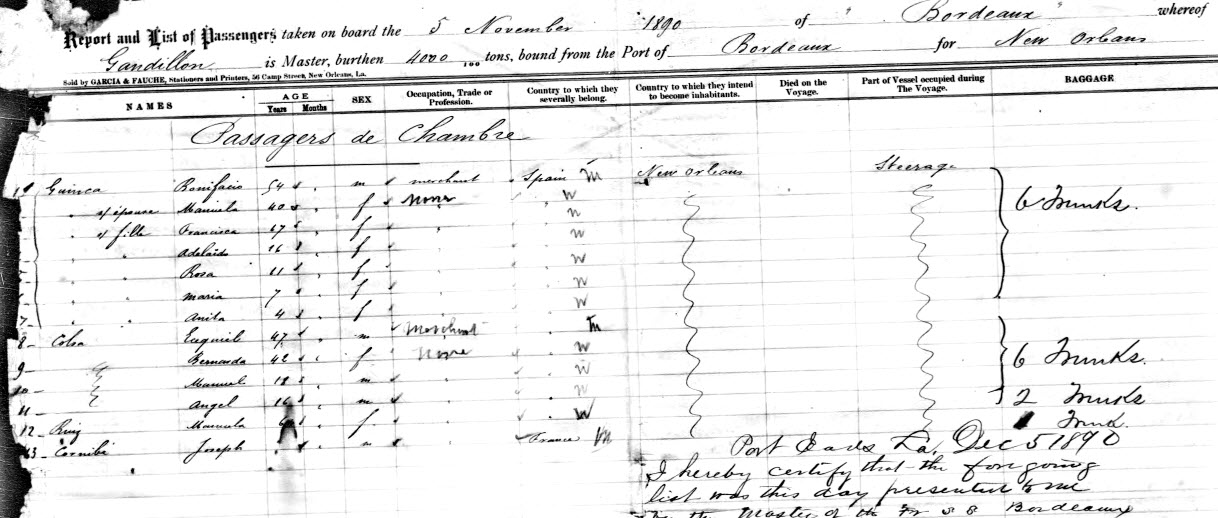 Report and List of Passengers taken on board the 5 November 1890 of " Bordeaux " whereof
Gandillon is Master, burthen 4000 tons, bound from the Port of Bordeaux for New Orleans
Sold by GARCIA & FAUCHE, Stationers and Printers, 56 Camp Street, New Orleans, La.
NAMES AGE Years Months SEX Occupation, Trade or Profession. Country to which they severally belong. Country to which they intend to become inhabitants. Died on the Voyage. Part of Vessel occupied during The Voyage. BAGGAGE
Passagers de Chambre
Bonifacio 54 m merchant Spain New Orleans Steerage
épouse Manuela 40 f None 6 Trunks.
fille Francisca f
Adelaide 16 f
Rosa 11 f
Maria 7 f
7 Anita 4 f
8 Ezequiel 47 m Merchant
9 Bernarda 42 f None 6 Trunks.
10 Manuel 18 m
11 Angel 16 m 2 Trunks
12 Ruiz Manuela f Trunk.
13 Joseph m France
Port Eads La, Dec 5 1890
I hereby certify that the foregoing
list was this day presented to me
by the Master of the Fr S S Bordeaux